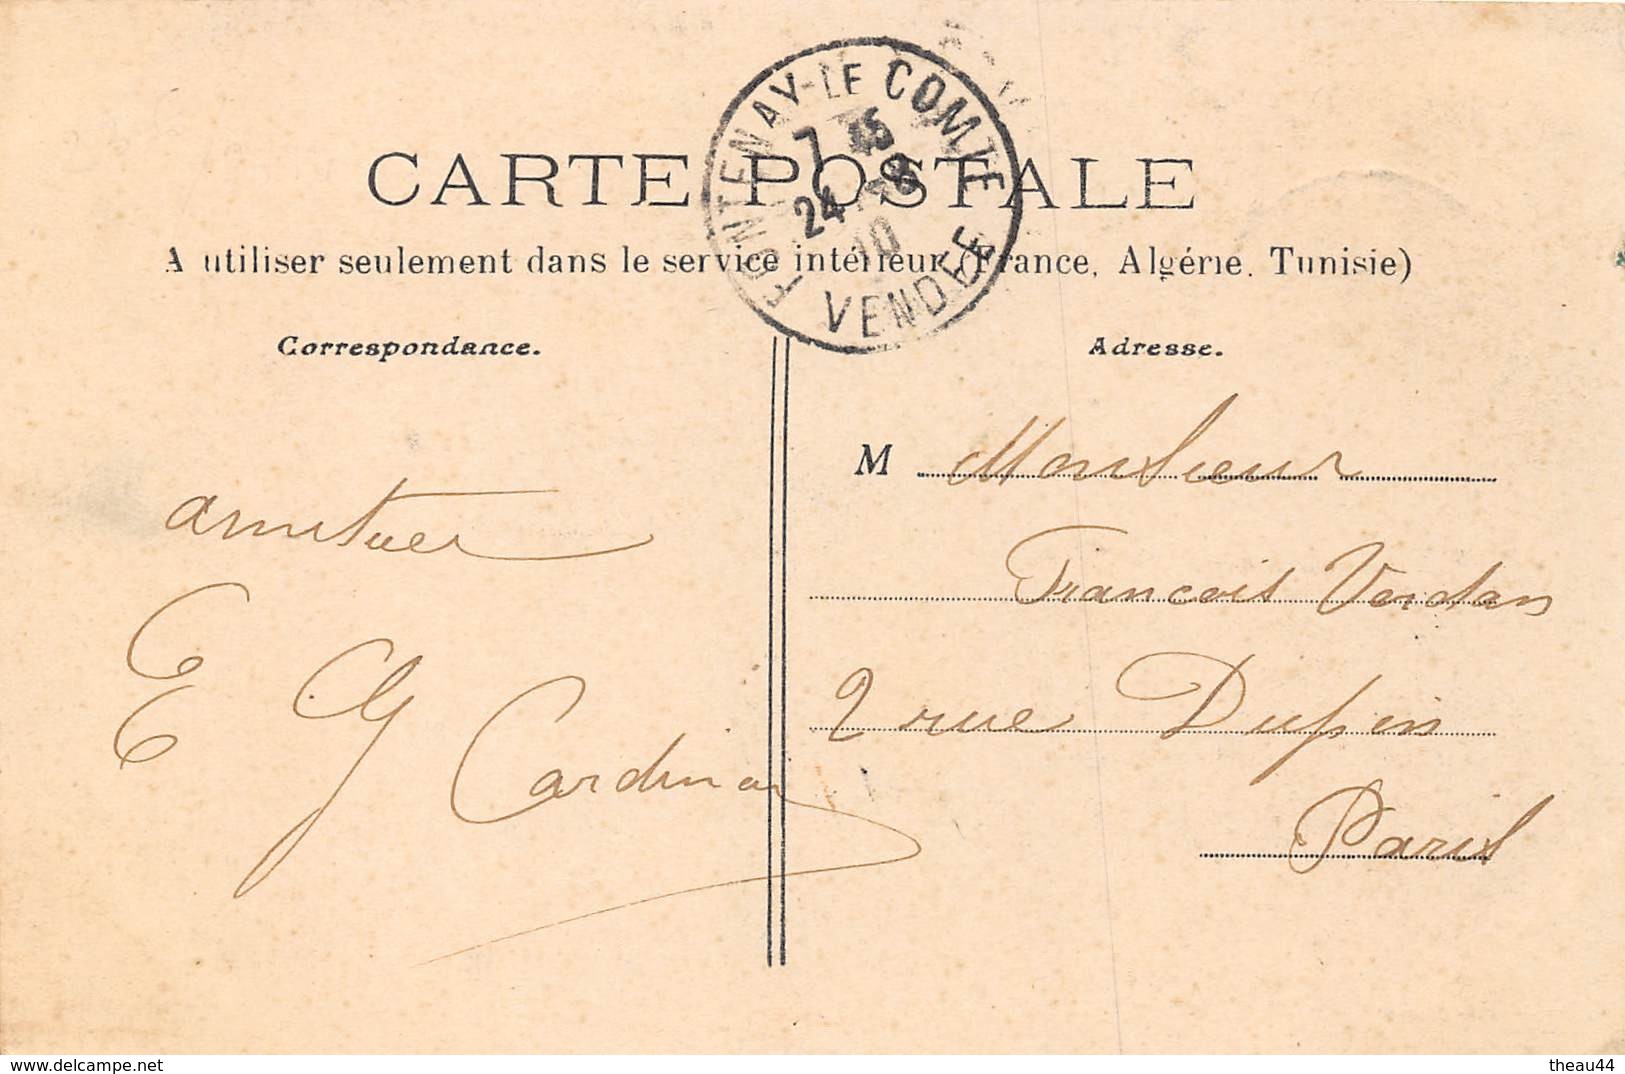 CARTE POSTALE
A utiliser seulement dans le service intérieur (France, Algérie, Tunisie)
FONTENAY-LE COMTE
7 45
24
10
VENDÉE
Correspondance.
Adresse.
amities
E G Cardin
M Monsieur
Francois Verdan
2 rue Dupin
Paris
delcampe.net
theau44